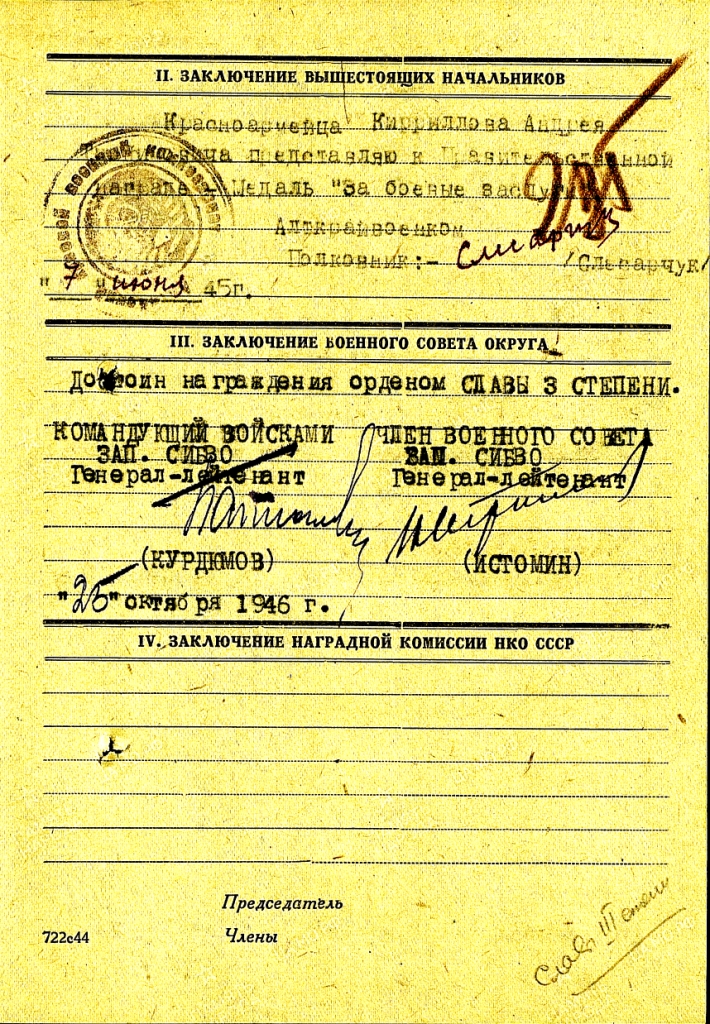 II. ЗАКЛЮЧЕНИЕ ВЫШЕСТОЯЩИХ НАЧАЛЬНИКОВ
Красноармейца Кирриллова Андрея
представляю к Правительственной
награде - Медаль "За боевые заслуги"
Алткрайвоенком
Полковник:- /Слесарчук/
"7" июня 45г.
III. ЗАКЛЮЧЕНИЕ ВОЕННОГО СОВЕТА ОКРУГА
Достоин награждения орденом СЛАВЫ 3 СТЕПЕНИ.
КОМАНДУЮЩИЙ ВОЙСКАМИ ЧЛЕН ВОЕННОГО СОВЕТА
ЗАП. СИБВО ЗАП. СИБВО
Генерал-лейтенант Генерал-лейтенант
(КУРДЮМОВ) (ИСТОМИН)
"25" октября 1946 г.
IV. ЗАКЛЮЧЕНИЕ НАГРАДНОЙ КОМИССИИ НКО СССР
Председатель
722с44 Члены
Слав III степени